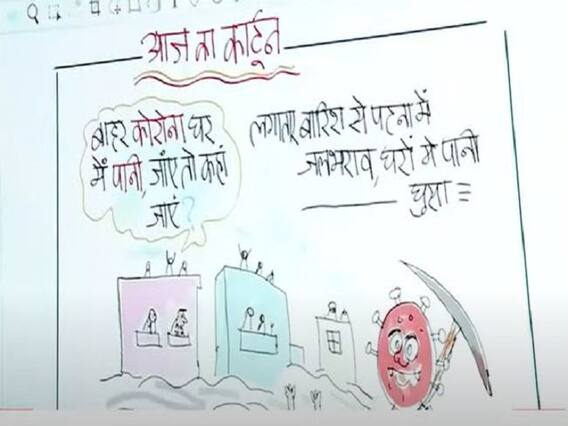 आज का कार्टून
बाहर कोरोना घर
में पानी, जाएं तो कहां
जाएं?
लगातार बारिश से पटना में
जलभराव, घरों में पानी
घुसा